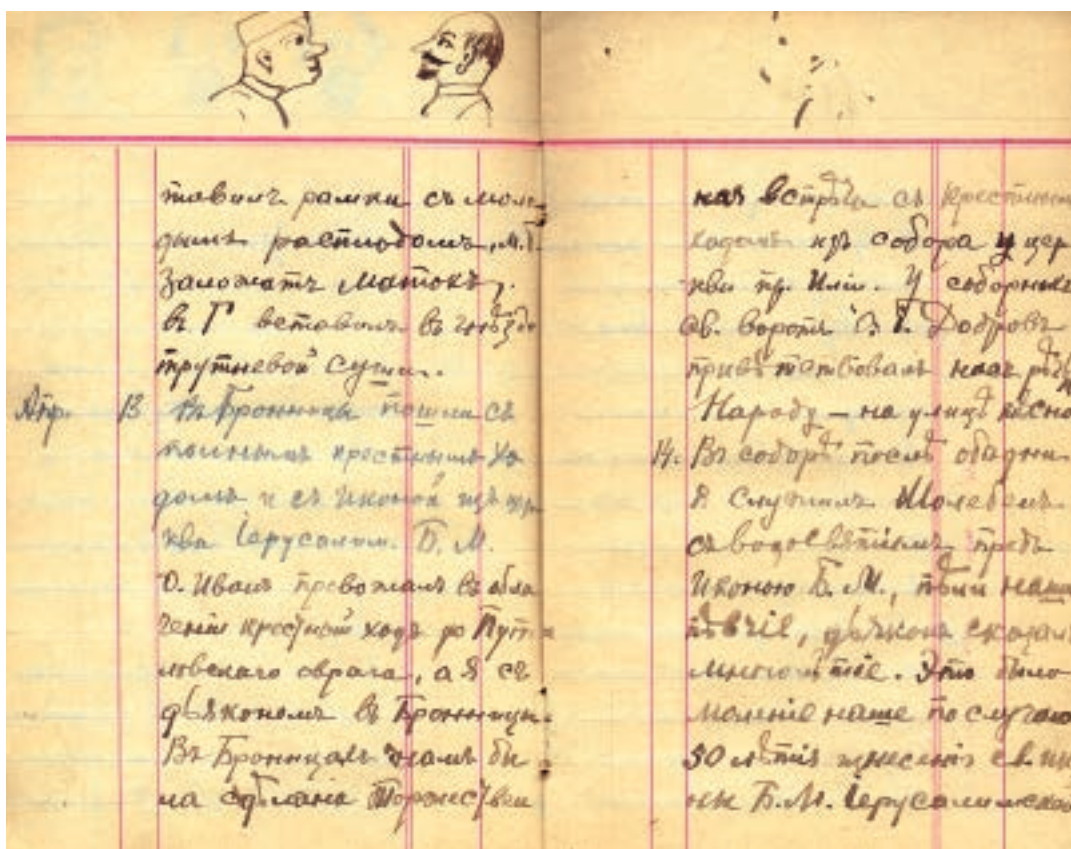 тавилъ рамки съ моло
дымъ расплодомъ, М.Б.
заложатъ маток
въ Г вставилъ въ гнѣздо
трутневой суши.
Апр. 13 Въ Бронницы пошли съ
полнымъ крестнымъ хо
домъ и съ иконой изъ цер
кви Іерусалим. Б. М.
О. Иванъ провожалъ въ обла
ченіи крестный ходъ до
овскаго оврага, а я съ
дьякономъ въ Бронницы.
Въ Бронницахъ намъ бы
ла сдѣлана торжествен
ная встрѣча съ крестнымъ
ходомъ изъ собора у цер
кви пр. Иліи. У соборныхъ
св. воротъ Добровъ
привѣтствовалъ насъ рѣчью
Народу – на улицѣ тѣсно
14. Въ соборѣ послѣ обѣдни
я служилъ молебенъ
съ водосвятіемъ предъ
Иконою Б. М., пѣли наши
пѣвчіе, дьяконъ сказалъ
многолѣтіе. Это было
моленіе наше по случаю
50 лѣтія принесенія св. ик
оны Б. М. Іерусалимской